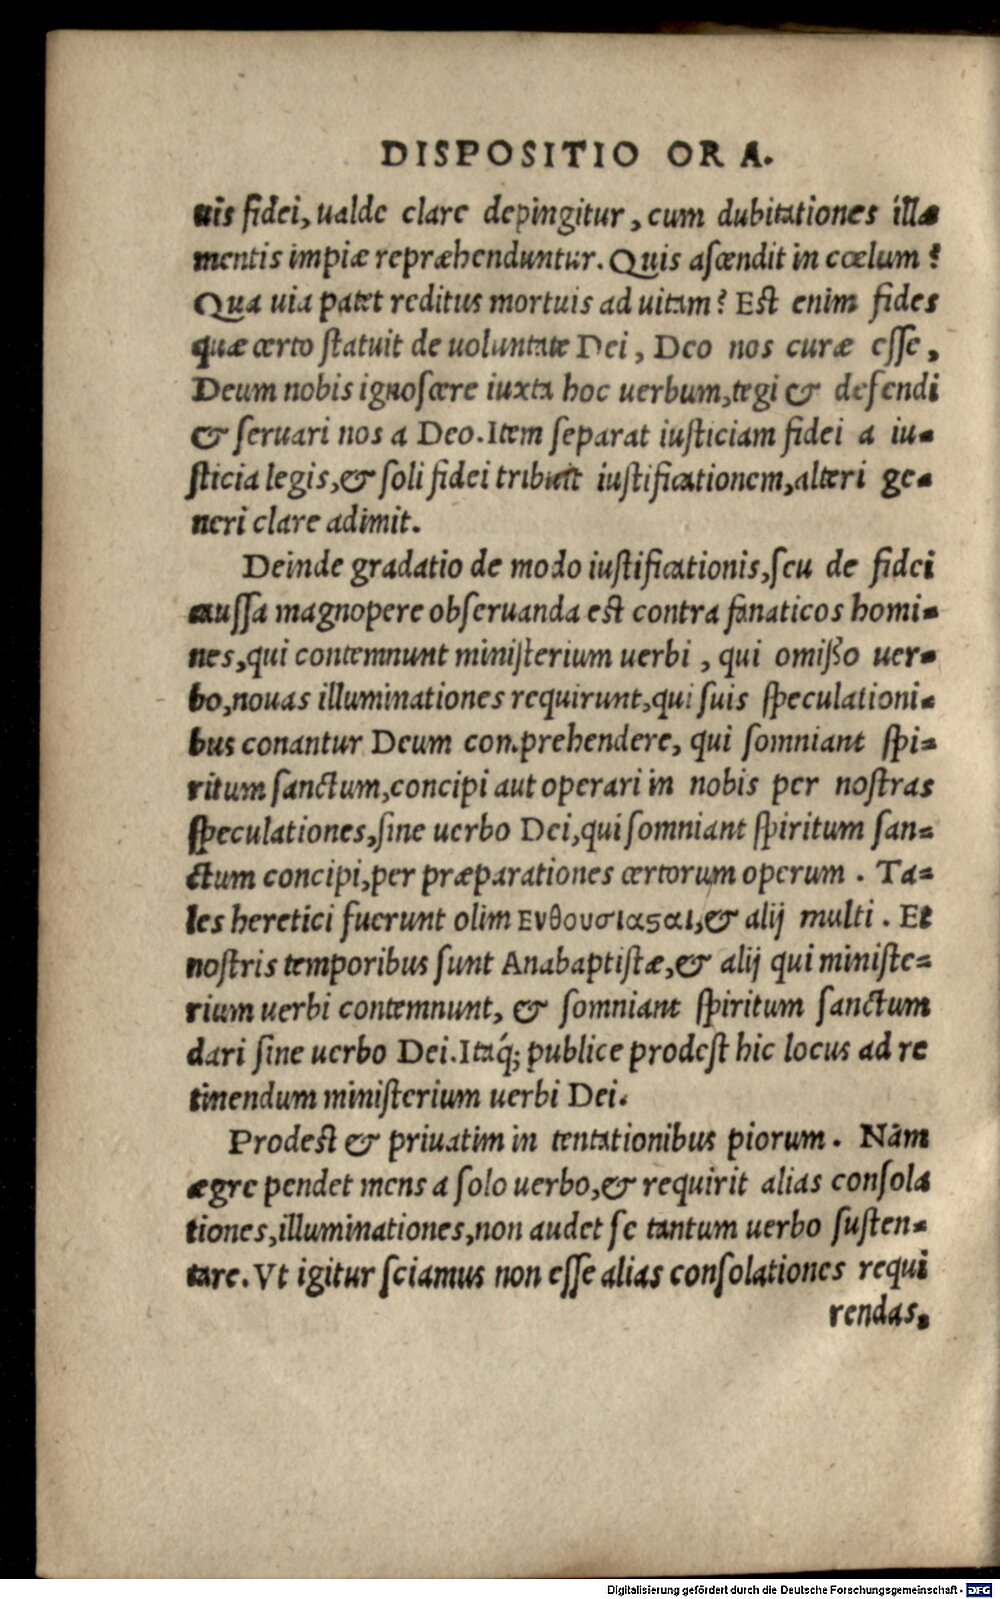 DISPOSITIO ORA.
uis fidei, ualde clare depingitur, cum dubitationes illæ
mentis impiæ repræhenduntur. Quis ascendit in cœlum?
Qua uia patet reditus mortuis ad uitam? Est enim fides
quæ certo statuit de uoluntate Dei, Deo nos curæ esse,
Deum nobis ignoscere iuxta hoc uerbum, tegi & defendi
& seruari nos a Deo. Item separat iusticiam fidei a iu-
sticia legis, & soli fidei tribuit iustificationem, alteri ge-
neri clare adimit.
Deinde gradatio de modo iustificationis, seu de fidei
caussa magnopere obseruanda est contra fanaticos homi-
nes, qui contemnunt ministerium uerbi, qui omißo uer-
bo, nouas illuminationes requirunt, qui suis speculationi-
bus conantur Deum comprehendere, qui somniant spi-
ritum sanctum, concipi aut operari in nobis per nostras
speculationes, sine uerbo Dei, qui somniant spiritum san-
ctum concipi, per præparationes certorum operum. Ta-
les heretici fuerunt olim Ενθουσιαϛαι, & alij multi. Et
nostris temporibus sunt Anabaptistæ, & alij qui ministe-
rium uerbi contemnunt, & somniant spiritum sanctum
dari sine uerbo Dei. Itaq́; publice prodest hic locus ad re
tinendum ministerium uerbi Dei.
Prodest & priuatim in tentationibus piorum. Nam
ægre pendet mens a solo uerbo, & requirit alias consola
tiones, illuminationes, non audet se tantum uerbo susten-
tare. Vt igitur sciamus non esse alias consolationes requi
rendas,
Digitalisierung gefördert durch die Deutsche Forschungsgemeinschaft - DFG